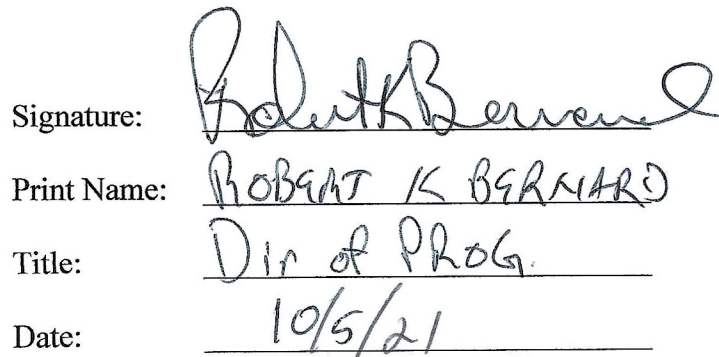 Signature: Robert K Bernard
Print Name: ROBERT K BERNARD
Title: Dir of PROG.
Date: 10/5/21